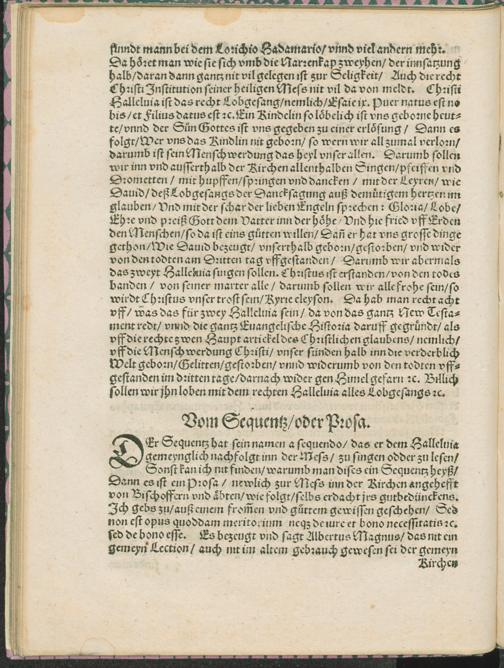 findt mann bei dem Lorichio Hadamario/ vnnd viel andern mehr.
Da höret man wie sie sich vmb die Narrenkap zweyhen/ der innsatzung
halb/ daran dann gantz nit vil gelegen ist zur Seligkeit/ Auch die recht
Christi Institution seiner heiligen Mess nit vil da von meldt. Christi
Halleluia ist das recht Lobgesang/ nemlich/ Esaie ix. Puer natus est no
bis/ et Filius datus est ꝛc. Ein Kindelin so löbelich ist vns geborne heut-
te/ vnnd der Sün Gottes ist vns gegeben zu einer erlösung/ Dann es
folgt/ Wer vns das Kindlin nit geborn/ so wern wir all zumal verlorn/
darumb ist sein Menschwerdung das heyl vnser allen. Darumb sollen
wir inn vnd ausserthalb der Kirchen allenthalben Singen/ pfeiffen vnd
Drometten/ mit hupffen/ springen vnd dancken/ mit der Leyren/ wie
Dauid/ deß Lobgesangs der Dancksagung auß demütigem hertzen im
glauben/ Vnd mit der schar der lieben Engeln sprechen: Gloria/ Lobe/
Ehre vnd preiß Gott dem Vatter inn der höhe/ Vnd hie fried vff Erden
den Menschen/ so da ist eins gütten willen/ Dañ er hat vns grosse dinge
gethon/ Wie Dauid bezeugt/ vnserthalb geborn/ gestorben/ vnd wider
von den todten am Dritten tag vffgestanden/ Darumb wir abermals
das zweyt Halleluia singen sollen. Christus ist erstanden/ von des todes
banden/ von seiner marter alle/ darumb sollen wir alle frohe sein/ so
wirdt Christus vnser trost sein/ Kyrie eleyson. Da hab man recht acht
vff/ was das für zwey Halleluia sein/ da von das gantz New Testa-
ment redt/ vnnd die gantz Euangelische Historia daruff gegründt/ als
vff die rechte zwen Haupt artickel des Christlichen glaubens/ nemlich/
vff die Mensch werdung Christi/ vnser sünden halb inn die verderblich
Welt geborn/ Gelitten/ gestorben/ vnnd widerumb von den todten vff-
gestanden im dritten tage/ darnach wider gen Himel gefarn ꝛc. Billich
sollen wir jhn loben mit dem rechten Halleluia alles Lobgesangs ꝛc.
Vom Sequentz/ oder Prosa.
DEr Sequentz hat sein namen a sequendo/ das er dem Halleluia
gemeynglich nachfolgt inn der Mess/ zu singen odder zu lesen/
Sonst kan ich nit finden/ warumb man dises ein Sequentz heyß/
Dann es ist ein Prosa/ newlich zur Mess inn der Kirchen angehefft
von Bischoffern vnd äbten/ wie folgt/ selbs erdacht jrs gutbedünckens.
Ich gebs zu/ auß einem frommen vnd güttem gewissen geschehen/ Sed
non est opus quoddam meritorium neqz de iure et bono necessitatis ꝛc.
sed de bono esse. Es bezeugt vnd sagt Albertus Magnus/ das nit ein
gemeyn Lection/ auch nit im altem gebrauch gewesen sei der gemeyn
Kirchen